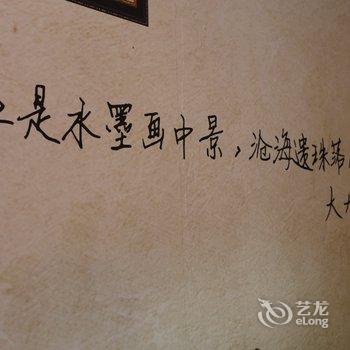 是水墨画中景，沧海遗珠
大
艺龙
eLong.